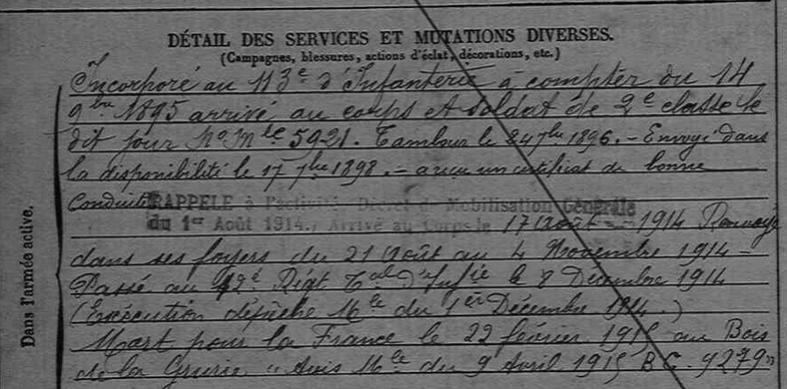 DÉTAIL DES SERVICES ET MUTATIONS DIVERSES.
(Campagnes, blessures, actions d'éclat, décorations, etc.)
Incorporé au 113e d'Infanterie à compter du 14
9bre 1895 arrivé au corps et soldat de 2e classe le
dit jour No Mle 5921. Tambour le 24 7bre 1896. – Envoyé dans
la disponibilité le 17 7bre 1898. – a reçu un certificat de bonne
Conduite RAPPELÉ à l'activité Décret de Mobilisation Générale
du 1er Août 1914., Arrivé au Corps le 17 Août 1914 Renvoyé
dans ses foyers du 21 Août au 4 Novembre 1914 –
Passé au Régt Tal d'Infie le 8 Décembre 1914
(Exécution dépêche Mle du 1er Décembre 1914.)
Mort pour la France le 22 février 1915 au Bois
de la Grurie " avis Mle du 9 Avril 1915 B.C. 9279"
Dans l'armée active.